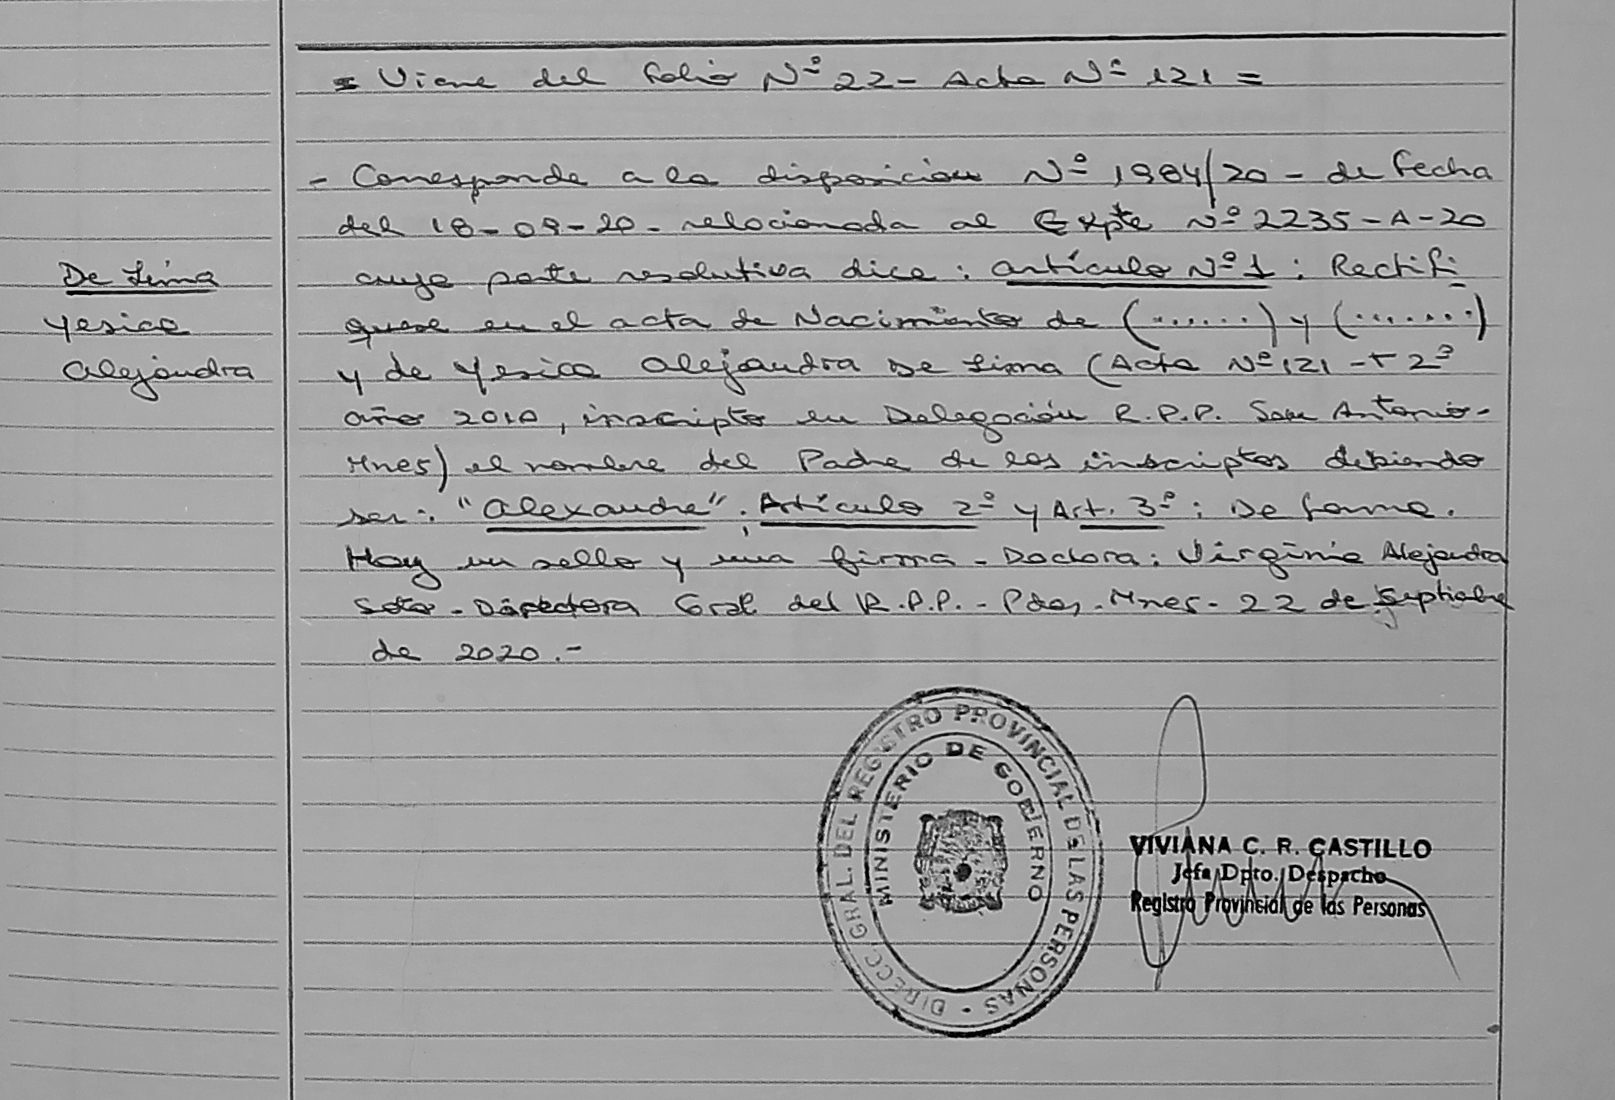 = Viene del folio Nº 22 - Acta Nº 121 =
- Corresponde a la disposicion Nº 1984/20 - de fecha
del 18-09-20 - relacionada al Expte Nº 2235-A-20
De Lima
cuya parte resolutiva dice: artículo Nº 1: Rectifi
Yesica
quese en el acta de Nacimiento de (.......) y (.......)
Alejandra
y de Yesica Alejandra De Lima (Acta Nº 121 - T 2º
año 2010, inscripto en Delegación R.P.P. San Antonio-
Mnes) el nombre del Padre de los inscriptos debiendo
ser: "Alexandre". Artículo 2º y Art. 3º: De forma.
Hay un sello y una firma - Doctora: Virginia Alejandra
Soto - Directora Gral. del R.P.P. - Pdas. Mnes - 22 de Septiembre
de 2020.-
DIRECC. GRAL. DEL REGISTRO PROVINCIAL DE LAS PERSONAS -
MINISTERIO DE GOBIERNO
VIVIANA C. R. CASTILLO
Jefa Dpto. Despacho
Registro Provincial de las Personas